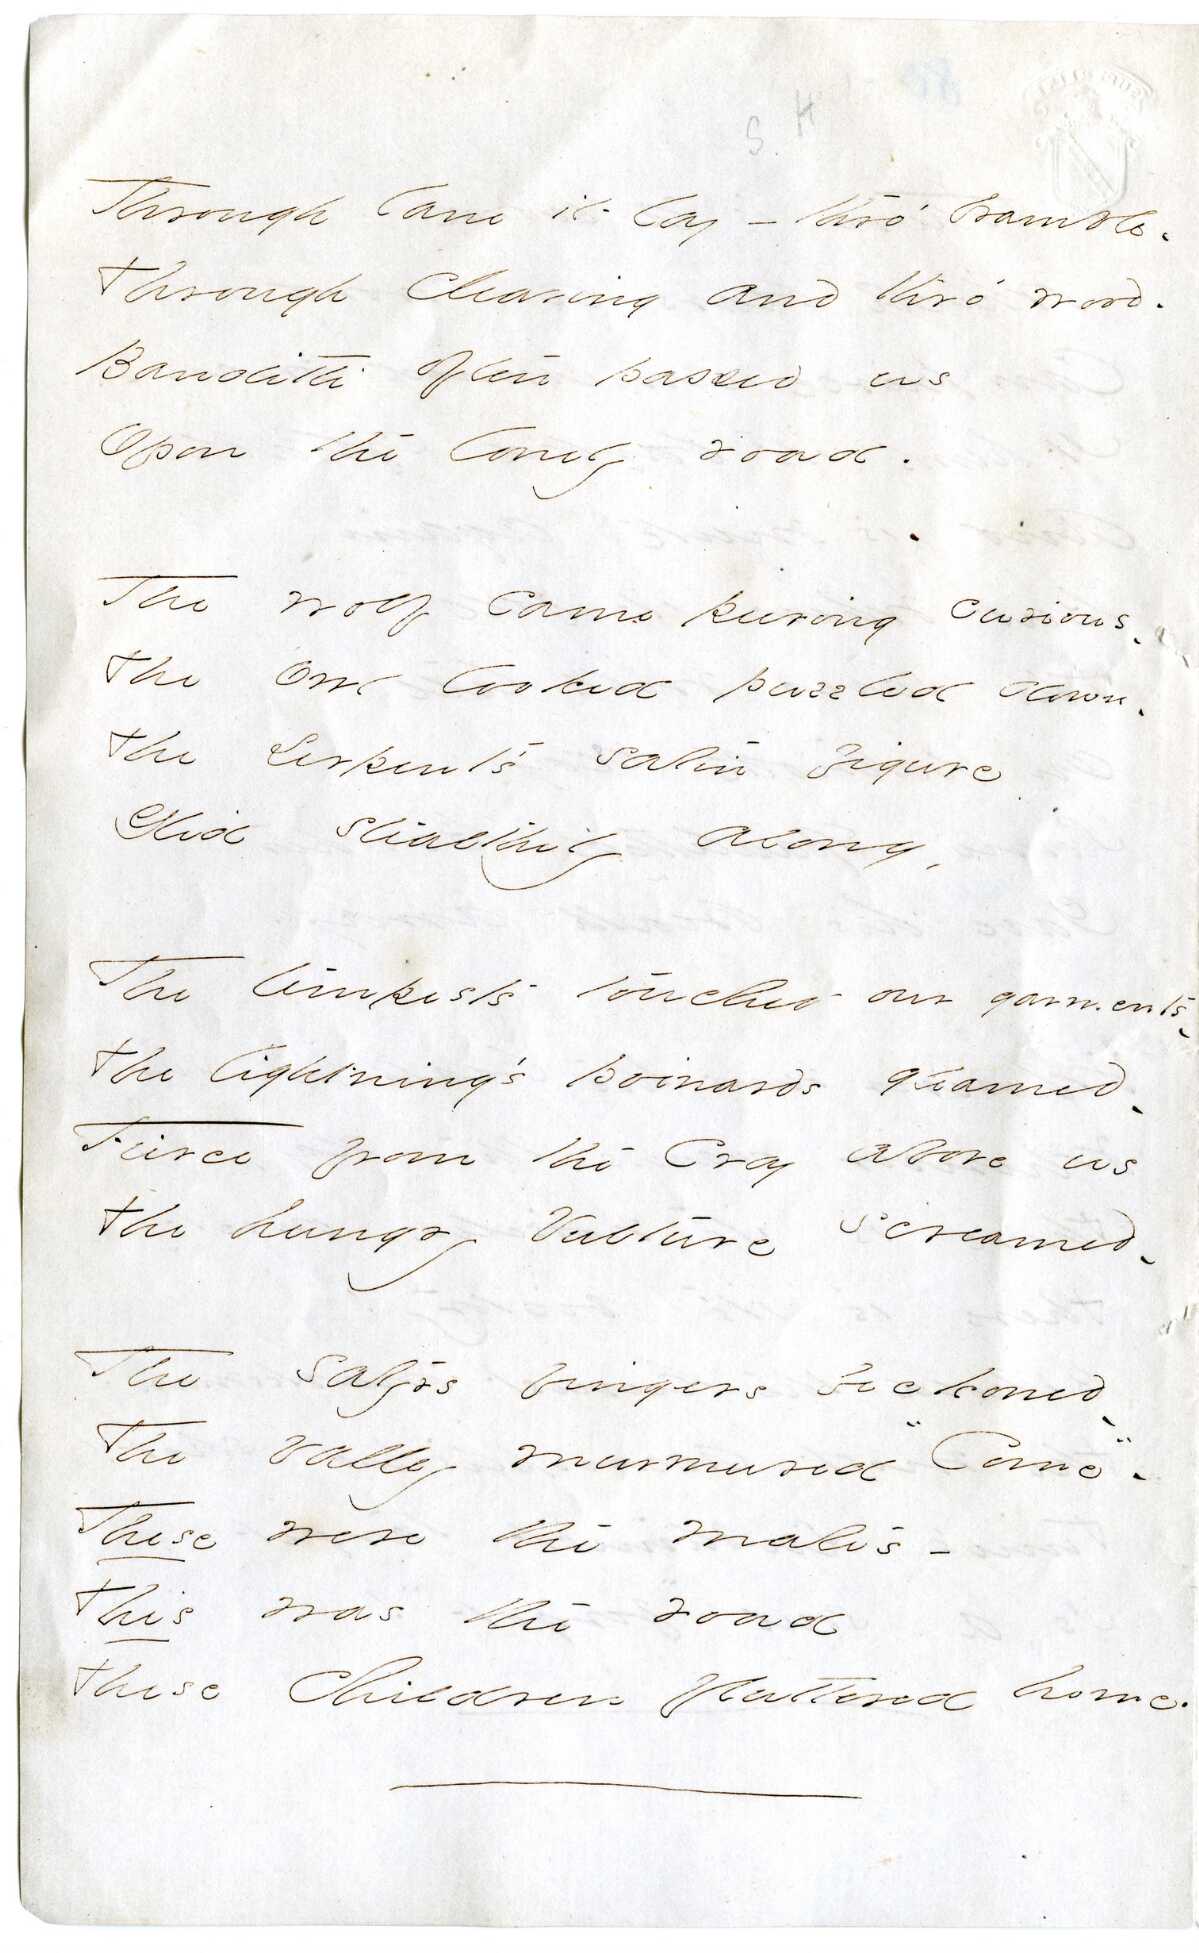 S. H
Through lane it lay - thro' bramble.
Through clearing and thro' wood.
Banditti often passed us
Opon the lonely road.
The wolf came peering curious.
The Owl looked puzzled down.
The Serpent's satin figure
Glid stealthily along.
The tempests touched our garments.
The lightning's poinards gleamed.
Fierce from the Crag above us
The hungry Vulture screamed.
The Satyrs fingers beckoned.
The Valley murmured "Come".
These were the mates -
This was the road
These Children fluttered home.